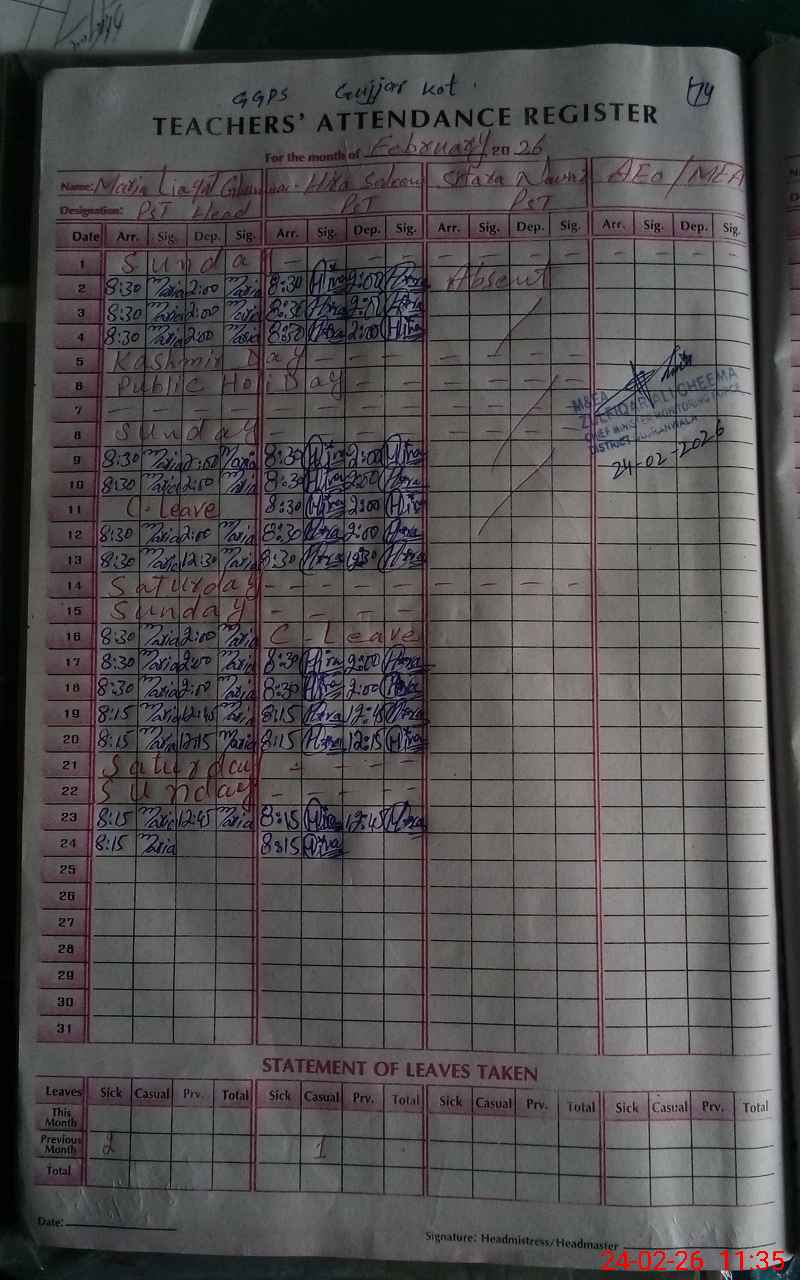 GGPS Gujjar Kot
TEACHERS' ATTENDANCE REGISTER
For the month of February 20 26
Name: Maria Liaqat Hira Saleem Sitara AEO / MEA
Designation: PST Head PST PST
Date Arr. Sig. Dep. Sig. Arr. Sig. Dep. Sig. Arr. Sig. Dep. Sig. Arr. Sig. Dep. Sig.
1 Sunda
2 8:30 Maria 2:00 Maria 8:30 Hira 2:00 Hira Absent
3 8:30 Maria 2:00 Maria 8:30 Hira 2:00 Hira
4 8:30 Maria 2:00 Maria 8:30 Hira 2:00 Hira
5 Kashmir Day
6 Public HoliDay
7
8 Sunday
9 8:30 Maria 2:00 Maria 8:30 Hira 2:00 Hira
10 8:30 Maria 2:00 Maria 8:30 Hira 2:00 Hira
11 C-Leave 8:30 Hira 2:00 Hira
12 8:30 Maria 2:00 Maria 8:30 Hira 2:00 Hira
13 8:30 Maria 12:30 Maria 8:30 Hira 12:30 Hira
14 Saturday
15 Sunday
16 8:30 Maria 2:00 Maria C-Leave
17 8:30 Maria 2:00 Maria 8:30 Hira 2:00 Hira
18 8:30 Maria 2:00 Maria 8:30 Hira 2:00 Hira
19 8:15 Maria 12:45 Maria 8:15 Hira 12:45 Hira
20 8:15 Maria 12:15 Maria 8:15 Hira 12:15 Hira
21 Saturday
22 Sunday
23 8:15 Maria 12:45 Maria 8:15 Hira 12:45 Hira
24 8:15 Maria 8:15 Hira
25
26
27
28
29
30
31
M&EA
ZULFIQAR ALI CHEEMA
CHIEF MINISTER MONITORING FORCE
DISTRICT GUJRANWALA
24-02-2026
STATEMENT OF LEAVES TAKEN
Leaves Sick Casual Prv. Total Sick Casual Prv. Total Sick Casual Prv. Total Sick Casual Prv. Total
This Month
Previous Month 2 1
Total
Date:
Signature: Headmistress/Headmaster
24-02-26 11:35